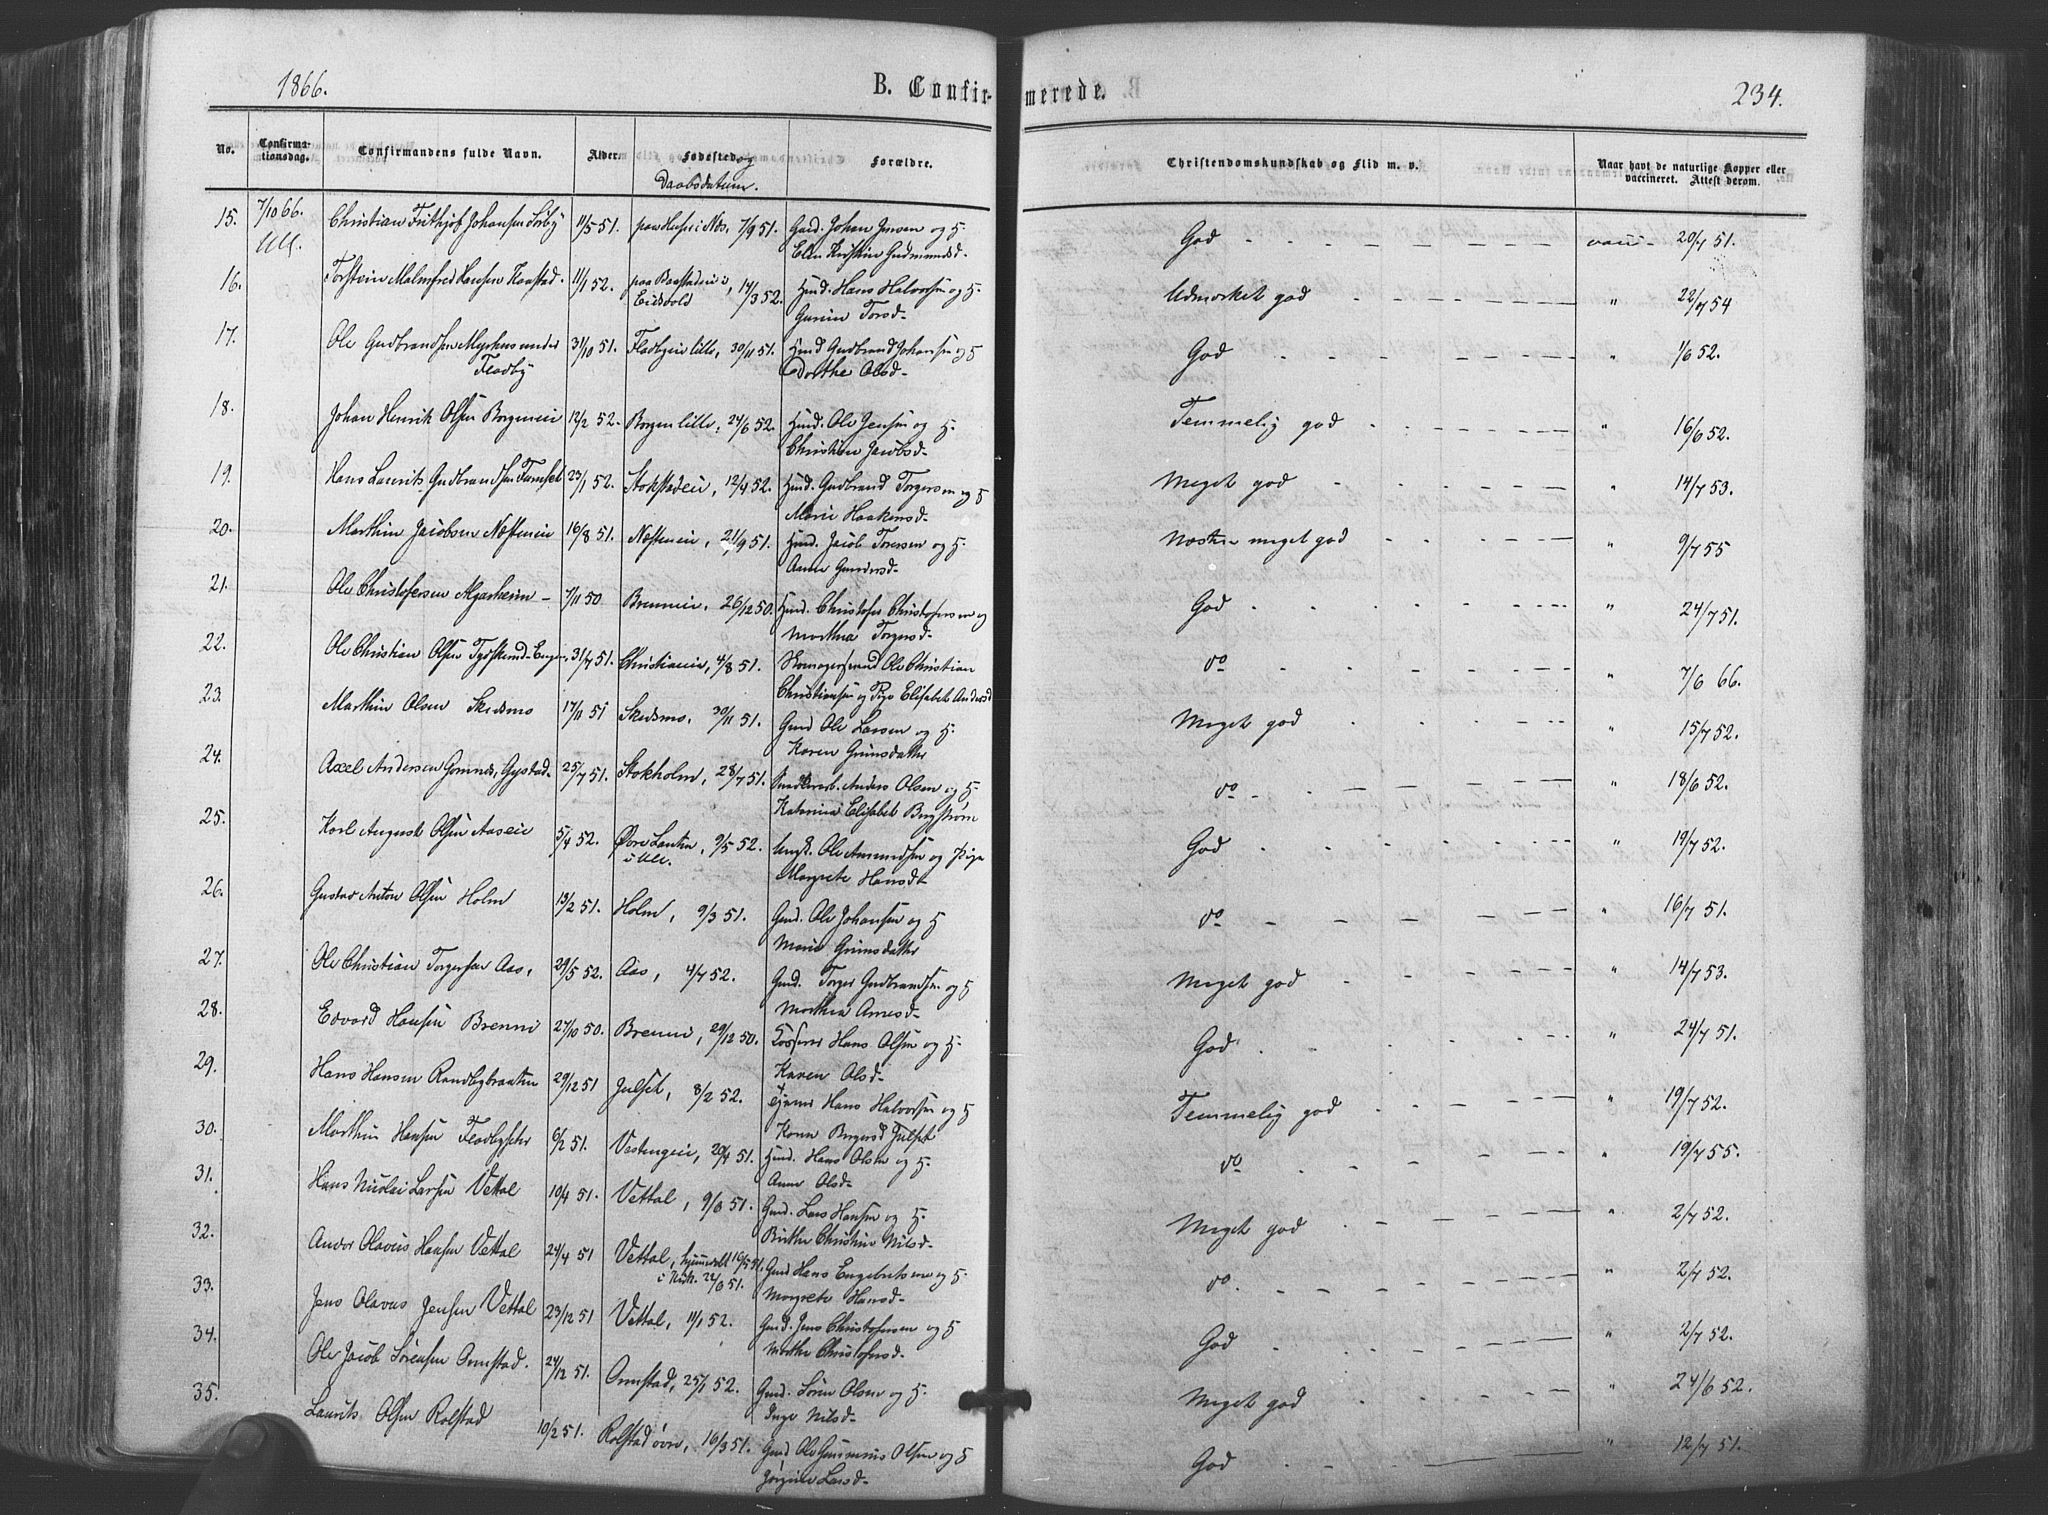 1866.
B. Confirmerede.
234.
No.
Confirmationsdag.
Confirmandens fulde Navn.
Alder.
Fødested og Daabsdatum.
Forældre.
Christendomskundskab og Flid m. v.
Naar havt de naturlige Kopper eller vaccineret. Attest derom.
15. 7/10 66. Christian Frithjof Johansen Sörby 11/5 51. paa i Næs, 7/9 51. Gaard. Johan Jensen og H. God 20/7 51.
Ull. Ellen Kirstine Gudmundsd.
16. Torstein Malmfred Hansen Kaastad. 11/1 52. paa i Eidsvold, 14/3 52. Huusd. Hans Halvorsen og H. Gurine Torsd. Udmærket god " 22/7 54
17. Ole Gudbrandsen Myrhus under Fladby 31/10 51. Fladbyeie lille, 30/11 51. Huusd Gudbrand Johansen og H Dorthe Olsd. God " 1/6 52.
18. Johan Henrik Olsen Borgeneie 12/2 52. Borgen lille, 24/6 52. Huusd. Ole Jensen og H. Christine Jacobsd. Temmelig god " 16/6 52.
19. Hans Laurits Gudbrandsen 23/1 52. Stokstadeie, 12/4 52. Huusd. Gudbrand Torgersen og H Marie Haakensd. Meget god " 14/7 53.
20. Marthin Jacobsen Næsteneie 16/8 51. Næsteneie, 21/9 51. Huusd. Jacob Toresen og H. Anne Gundersd. Næsten meget god " 9/7 55
21. Ole Christofersen Algarheim 7/11 50 Brenneie, 26/12 50. Huusd. Christofer Christofersen og Marthea Torgersd. God " 24/7 51.
22. Ole Christian Olsen Tydskerud-Engen, 31/7 51. Christianeie, 4/8 51. Skomagersvend Ole Christian Christiansen og Pige Elisabet Andersd do " 7/6 66.
23. Marthin Olsen Skedsmo 17/11 51 Skedsmo, 30/11 51. Gmd Ole Larsen og H. Karen Grimsdatter Meget god " 15/7 52.
24. Axel Andersen Gomnes, Gystad 25/7 51. Stokholm, 28/7 51. Anders Olsen og H. Katarina Elisabet Bergstrøm do " 18/6 52.
25. Karl August Olsen Aaseie 5/4 52. Øvre i Ull., 9/5 52. Ungk. Ole Amundsen og Pige Margrete Hansdt God " 19/7 52.
26. Gustav Anton Olsen Holm 13/2 51. Holm, 9/3 51. Gmd. Ole Johansen og H Marie Grimsdatter do " 16/7 51.
27. Ole Christian Torgersen Aas, 29/5 52. Aas, 4/7 52. Gmd. Torger Gudbrandsen og H Marthea Arnesd Meget god " 14/7 53.
28. Edvard Hansen Brenni 27/10 50. Brenni, 29/12 50. Hans Olsen og H. Karen Olsd God " 24/7 51.
29. Hans Hansen Randbybraaten 29/12 51 Julset, 8/2 52. Hans Halvorsen og H Karen Birgersd Julset Temmelig god " 19/7 52.
30. Marthin Hansen Fladbyseter 6/2 51. Vestengeie, 20/4 51. Huusd. Hans Olsen og H. Anne Olsd do " 19/7 55.
31. Hans Nicolai Larsen Vettal 10/4 51. Vettal, 9/6 51. Gmd. Lars Hansen og H. Birthe Christine Nilsd Meget god " 2/7 52.
32. Andor Olavus Hansen Vettal 24/4 51 Vettal, hjemmedøbt 16/5 51, i Kirk. 22/6 51. Gmd Hans Engebretsen og H. Margrete Hansd do " 2/7 52.
33. Jens Olavus Jensen Vettal 23/12 51 Vettal, 11/1 52. Gmd. Jens Christofersen og H Marthe Christofersd God " 2/7 52.
34. Ole Jacob Sørensen Onnstad. 24/12 51. Onnstad, 25/1 52. Gmd. Søren Olsen og H. Inge Nilsd Meget god " 24/6 52.
35. Laurits Olsen Rolstad 10/2 51. Rolstad øvre, 16/3 51. Gmd Ole Gummius Olsen og H Jørgine Larsd God " 12/7 51.